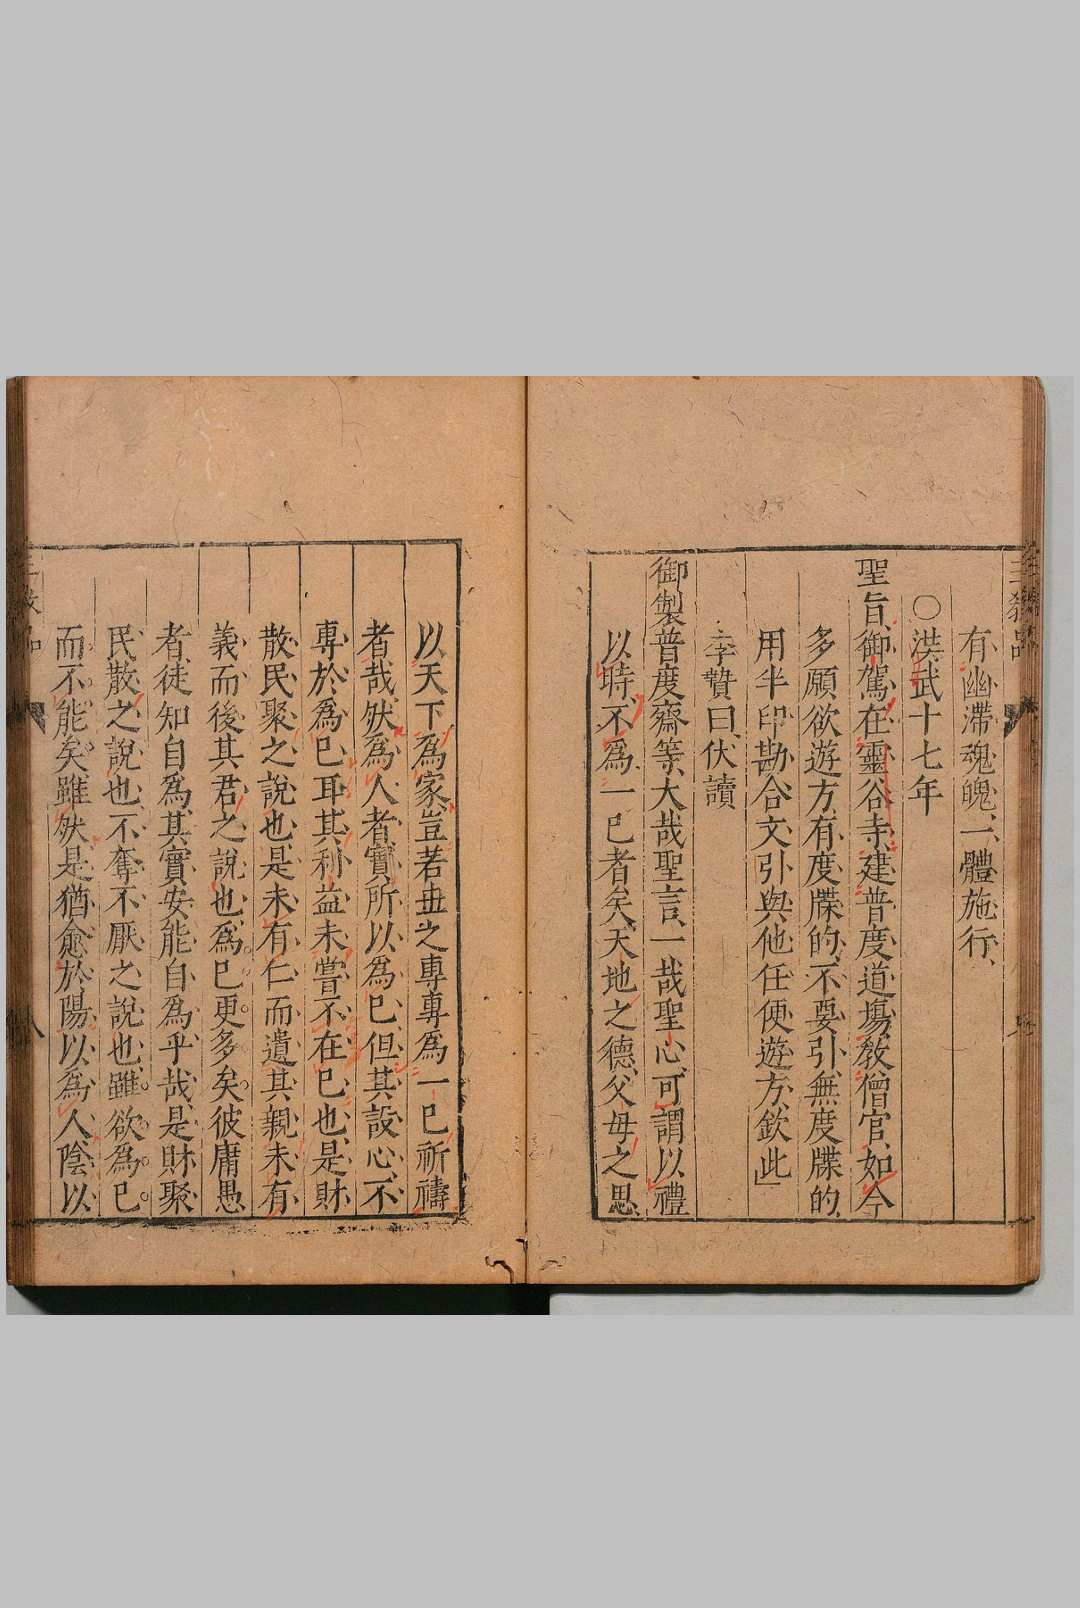 三教品
有幽滯魂魄、一體施行、
○洪武十七年
聖旨、御駕在靈谷寺、建普度道塲、教僧官、如今
多願欲遊方、有度牒的、不要引、無度牒的、
用半印勘合文引與他、任便遊方、欽此」
李贄曰、伏讀
御製普度齋等、大哉聖言、一哉聖心、可謂以禮
以時、不爲一已者矣、天地之德、父母之思、
以天下爲家、豈若丗之專專爲一已祈禱
者哉、然爲人者實所以爲已、但其設心、不
專於爲已耳、其利益未嘗不在已也、是財
散民聚之說也、是未有仁而遺其親、未有
義而後其君之說也、爲已更多矣、彼庸愚
者、徒知自爲、其實安能自爲乎哉、是財聚
民散之說也、不奪不厭之說也、雖欲爲已
而不能矣、雖然是猶愈於陽以爲人、陰以
三教品
八